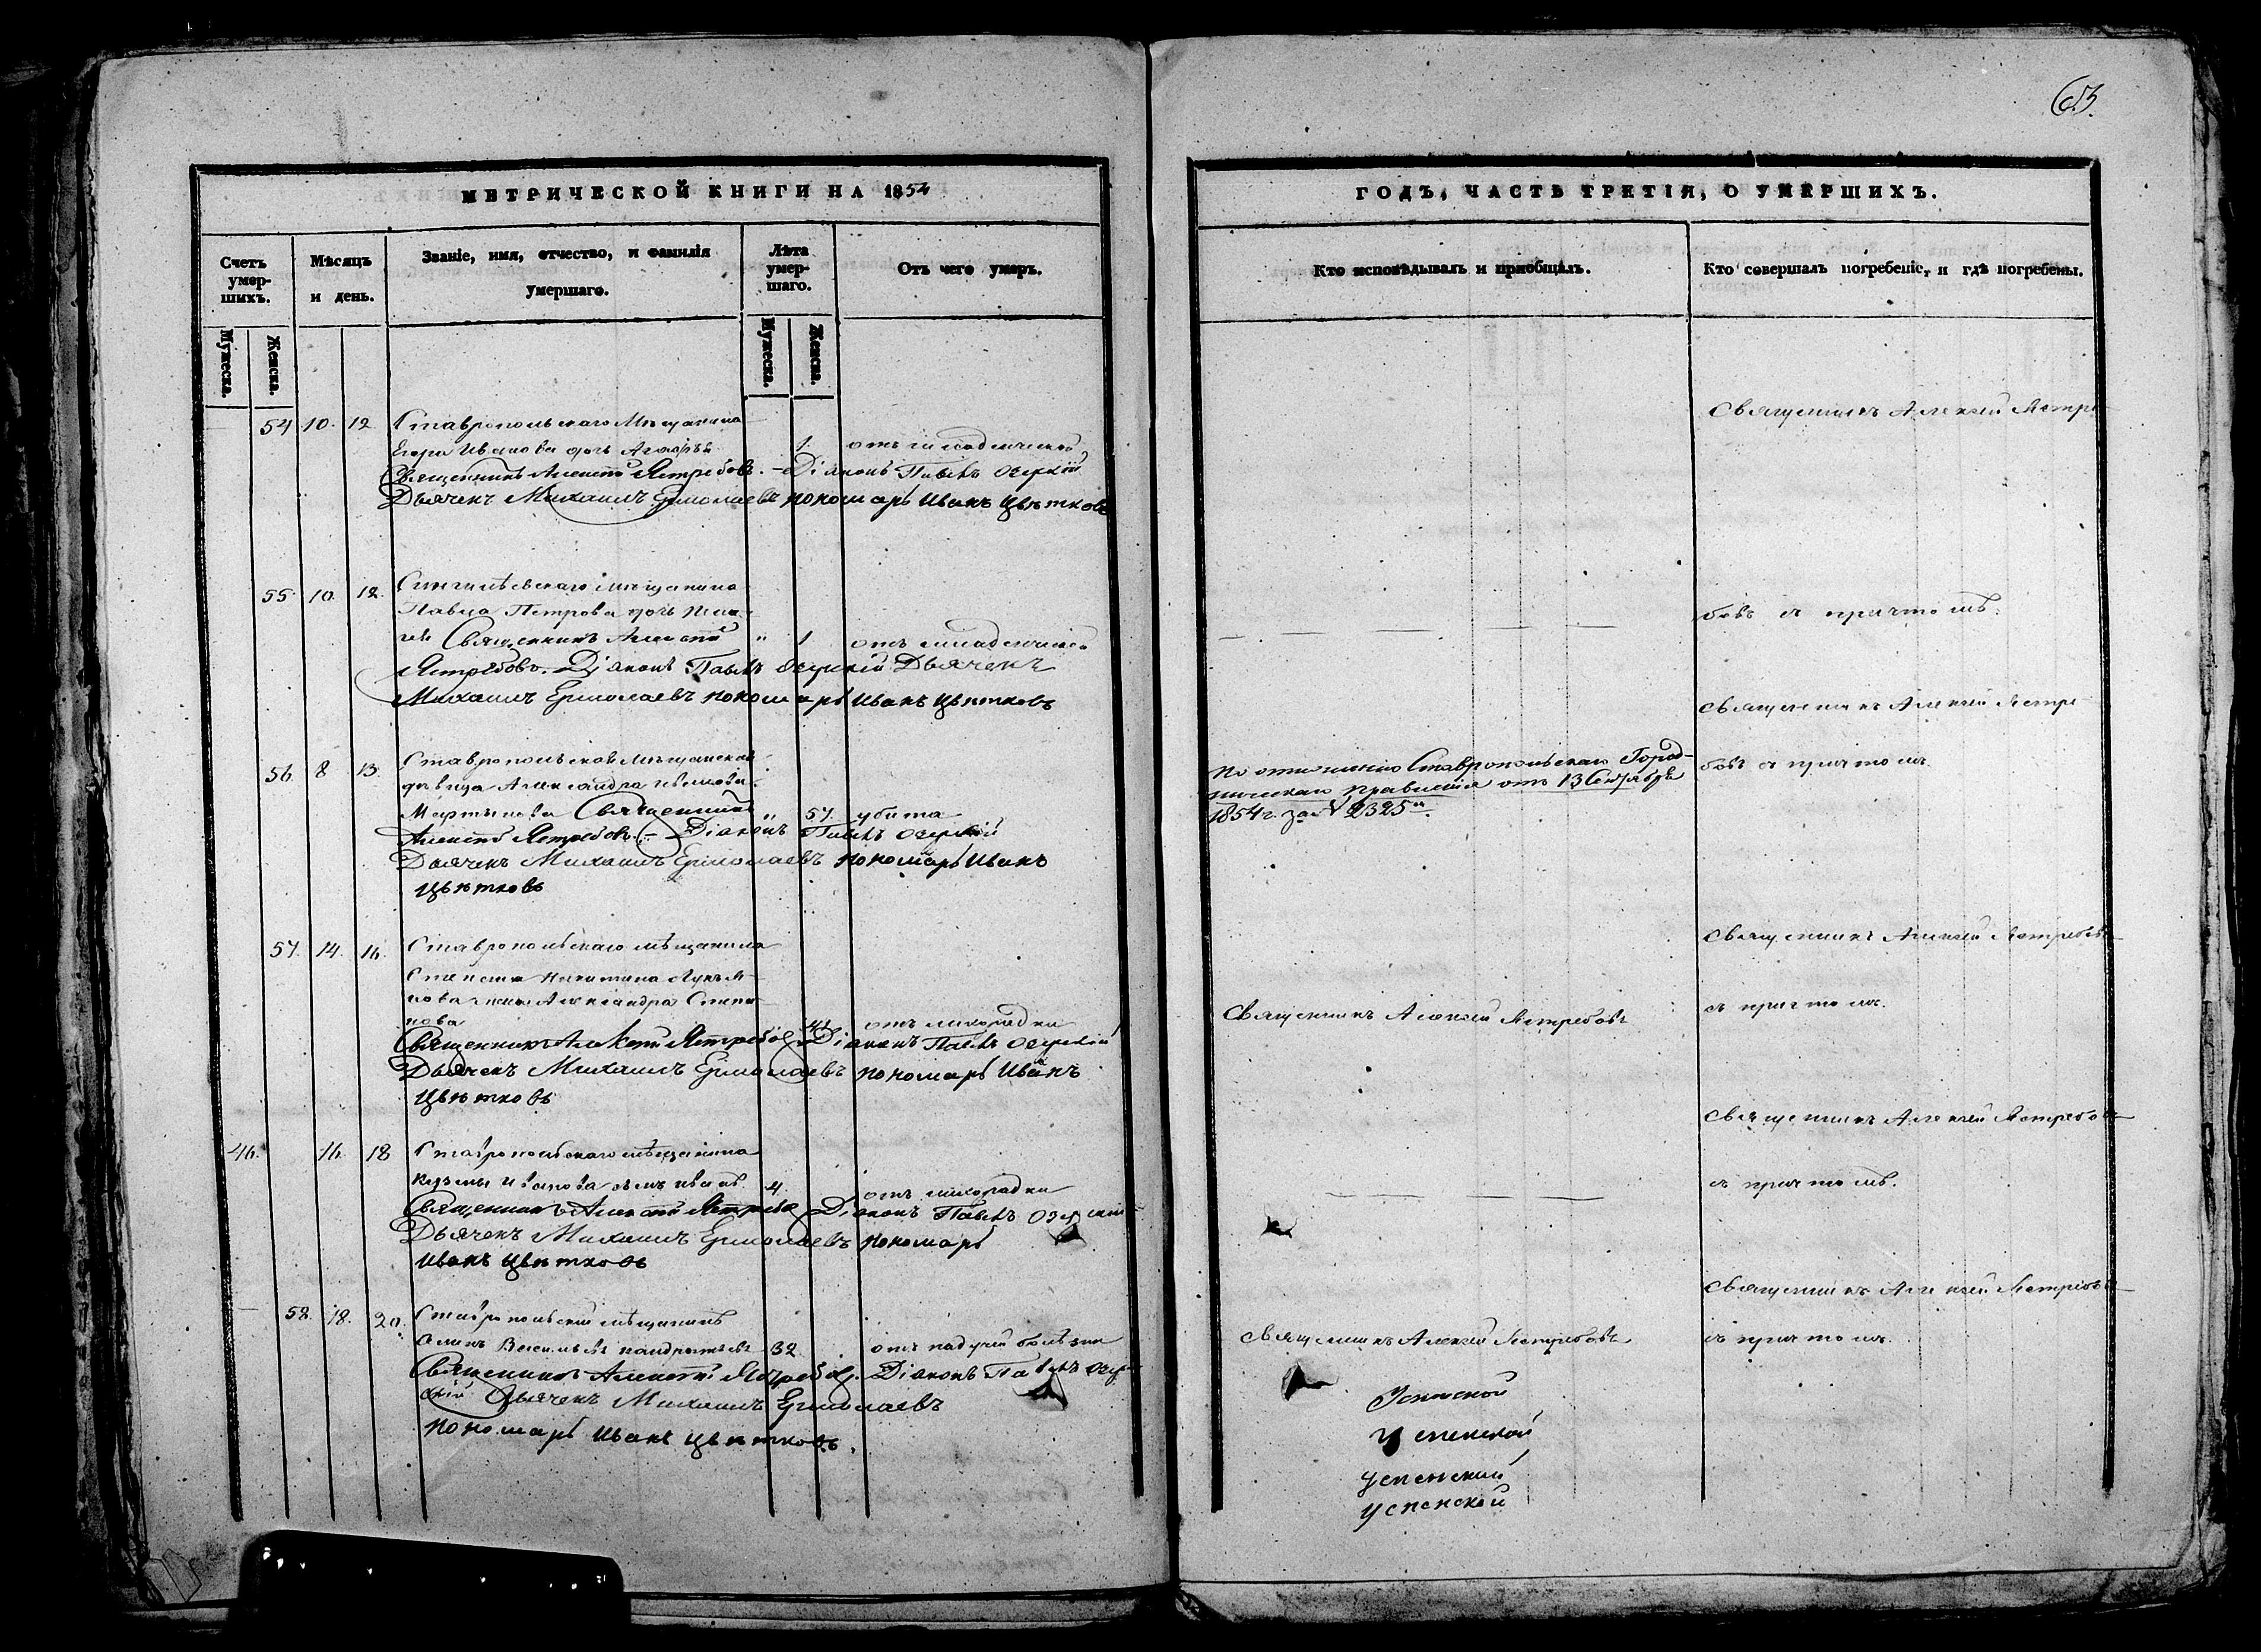 63.
МЕТРИЧЕСКОЙ КНИГИ НА 1854
Счетъ умер-шихъ.
Мѣсяцъ и день.
Званіе, имя, отчество, и фамилія умершаго.
Лѣта умер-шаго.
Отъ чего умеръ.
Мужеска.
Женска.
Мужеска.
Женска.
54 10. 12 Ставропольскаго Мѣщанина
Егора Иванова дочь 1. отъ младенческой
Священникъ Алексѣй Ястребовъ. Діаконъ Павелъ Озерскій
Дьячекъ Михаилъ Ермолаевъ пономарь Иванъ Цвѣтковъ
55. 10. 12. мѣщанина
Павла Петрова дочь
Священникъ Алексѣй " 1 отъ младенческой
Ястребовъ. Діаконъ Павелъ Озерскій Дьячекъ
Михаилъ Ермолаевъ пономарь Иванъ Цвѣтковъ
56. 8 13. Мѣщанской
дѣвица Александра
Мартынова Священникъ " 57. убита
Алексѣй Ястребовъ. Діаконъ Павелъ Озерскій
Дьячекъ Михаилъ Ермолаевъ пономарь Иванъ
Цвѣтковъ
57. 14. 16. Ставропольскаго мѣщанина
Степана Никитина
жена Александра Степа-
нова 41. отъ лихорадки
Священникъ Алексѣй Ястребовъ Діаконъ Павелъ Озерскій
Дьячекъ Михаилъ Ермолаевъ пономарь Иванъ
Цвѣтковъ
46. 16 18 Ставропольскаго мѣщанина
Кузьмы Иванова сынъ 4. отъ лихорадки
Священникъ Алексѣй Ястребовъ Діаконъ Павелъ Озерскій
Дьячекъ Михаилъ Ермолаевъ пономарь
Иванъ Цвѣтковъ
58. 18. 20. Ставропольскій мѣщанинъ
Васильевъ 32 отъ падучей болѣзни
Священникъ Алексѣй Ястребовъ. Діаконъ Павелъ Озер-
скій Дьячекъ Михаилъ Ермолаевъ
пономарь Иванъ Цвѣтковъ.
ГОДЪ, ЧАСТЬ ТРЕТІЯ, О УМЕРШИХЪ.
Кто исповѣдывалъ и пріобщалъ.
Кто совершалъ погребеніе, и гдѣ погребены.
Священникъ Алексѣй Ястре
бовъ съ причтомъ.
Священникъ Алексѣй Ястре
По отношенію Ставропольскаго Город-
ническаго правленія отъ 13 Сентября
1854 г. за № 2325м.
бовъ съ причтомъ.
Священникъ Алексѣй Ястребовъ
съ причтомъ.
Священникъ Алексѣй Ястребовъ
Священникъ Алексѣй Ястребовъ
съ причтомъ.
Священникъ Алексѣй Ястребовъ
Священникъ Алексѣй Ястребовъ
съ причтомъ.
Успенской
Успенской
Успенской